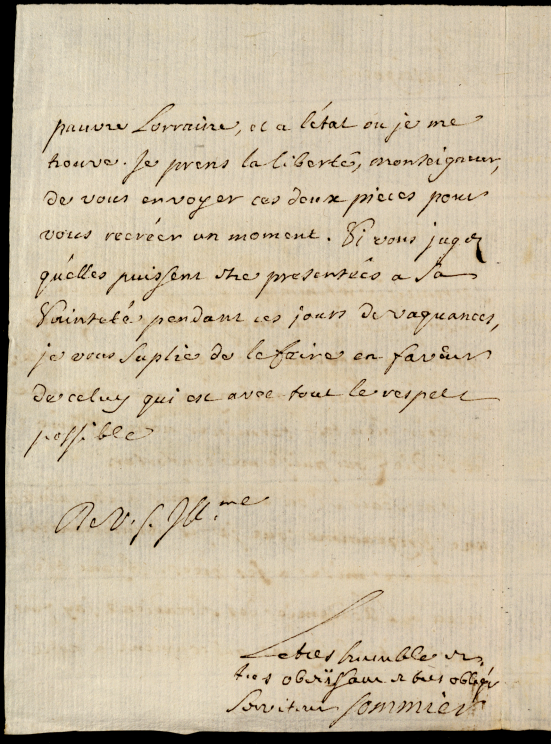 pauvre Lorraine, et a l'état ou je me
trouve. Je prens la liberté, monseigneur,
de vous envoyer ces deux pieces pour
vous recréer un moment. Si vous jugez
qu'elles puissent etre presentées a Sa
Sainteté pendant ces jours de vaquances,
je vous suplie de le faire en faveur
de celuy qui est avec tout le respect
possible
De V. S. Ill.me
Le tres humble et
tres obeïssant et tres obligé
Serviteur Sommier